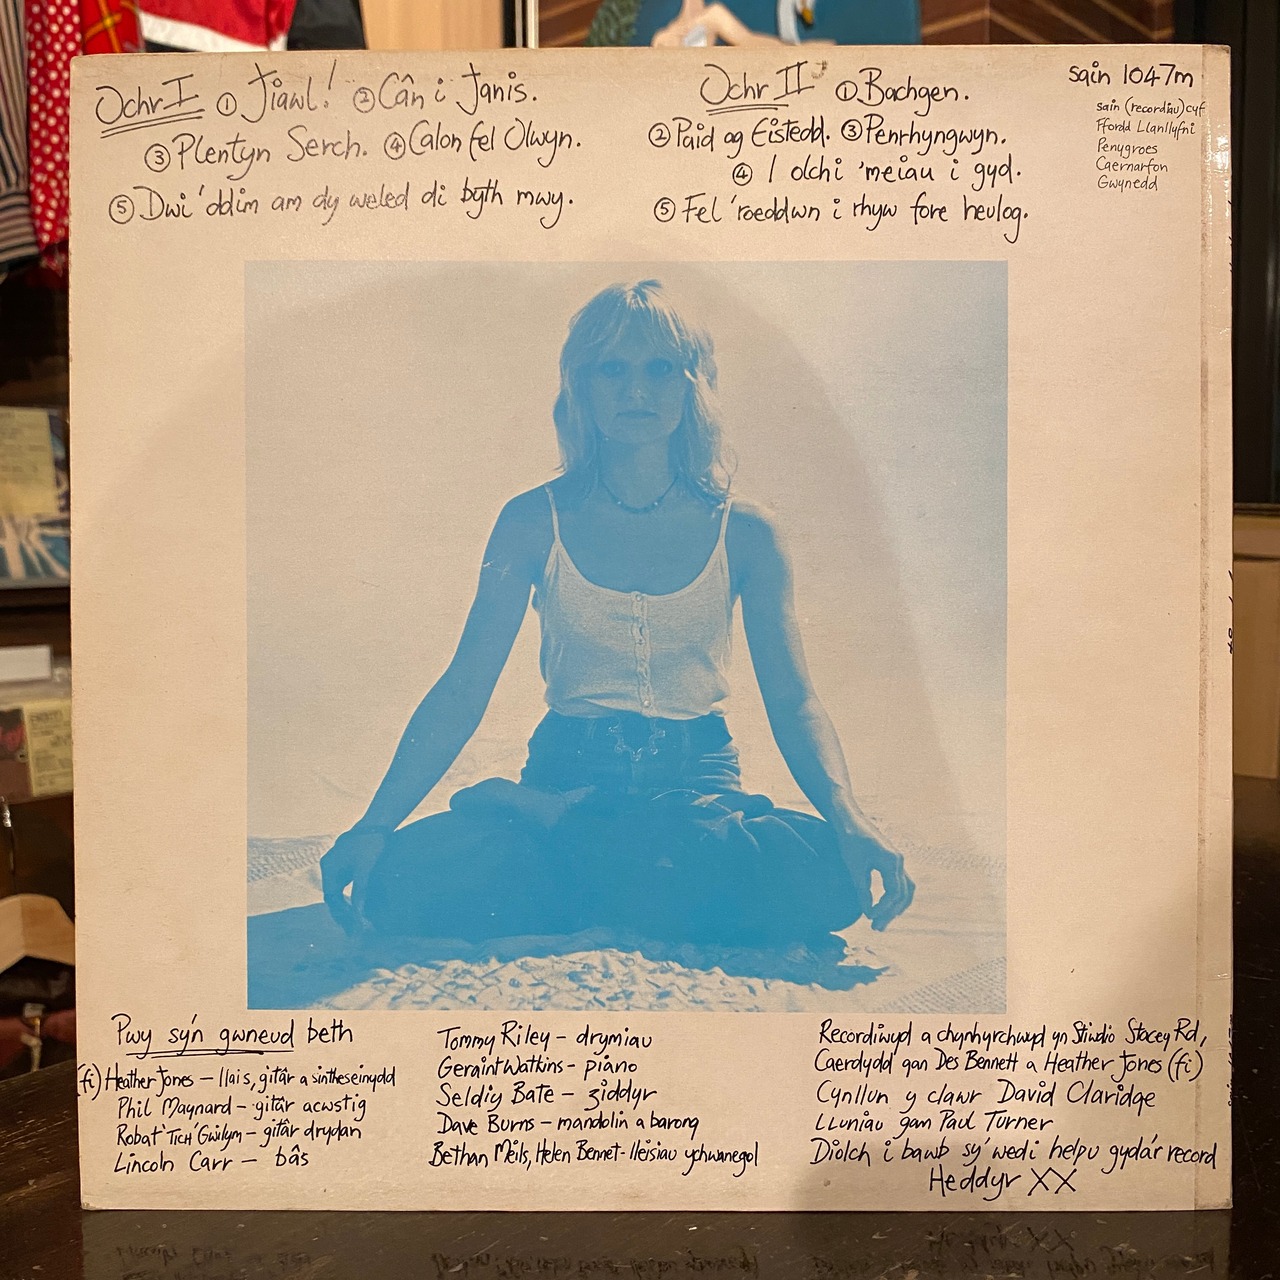 Ochr I ① Jiawl! ② Cân i Janis.
③ Plentyn Serch. ④ Calon fel Olwyn.
⑤ Dwi 'ddim am dy weled di byth mwy.
Ochr II ① Bachgen.
② Paid ag Eistedd. ③ Penrhyngwyn.
④ I olchi 'meiau i gyd.
⑤ Fel 'roeddwn i rhyw fore heulog.
sain 1047m
sain (recordiau) cyf
Ffordd Llanllyfni
Penygroes
Caernarfon
Gwynedd
Pwy sy'n gwneud beth
(fi) Heather Jones – llais, gitâr a sintheseinydd
Phil Maynard – gitâr acwstig
Robat 'Tich' Gwilym – gitâr drydan
Lincoln Carr – bâs
Tommy Riley – drymiau
Geraint Watkins – piano
Seldiy Bate – ziddyr
Dave Burns – mandolin a barong
Bethan Meils, Helen Bennet - lleisiau ychwanegol
Recordiwyd a chynhyrchwyd yn Stiwdio Stacey Rd,
Caerdydd gan Des Bennett a Heather Jones (fi)
Cynllun y clawr David Claridge
Lluniau gan Paul Turner
Diolch i bawb sy' wedi helpu gyda'r record
Heddyr XX